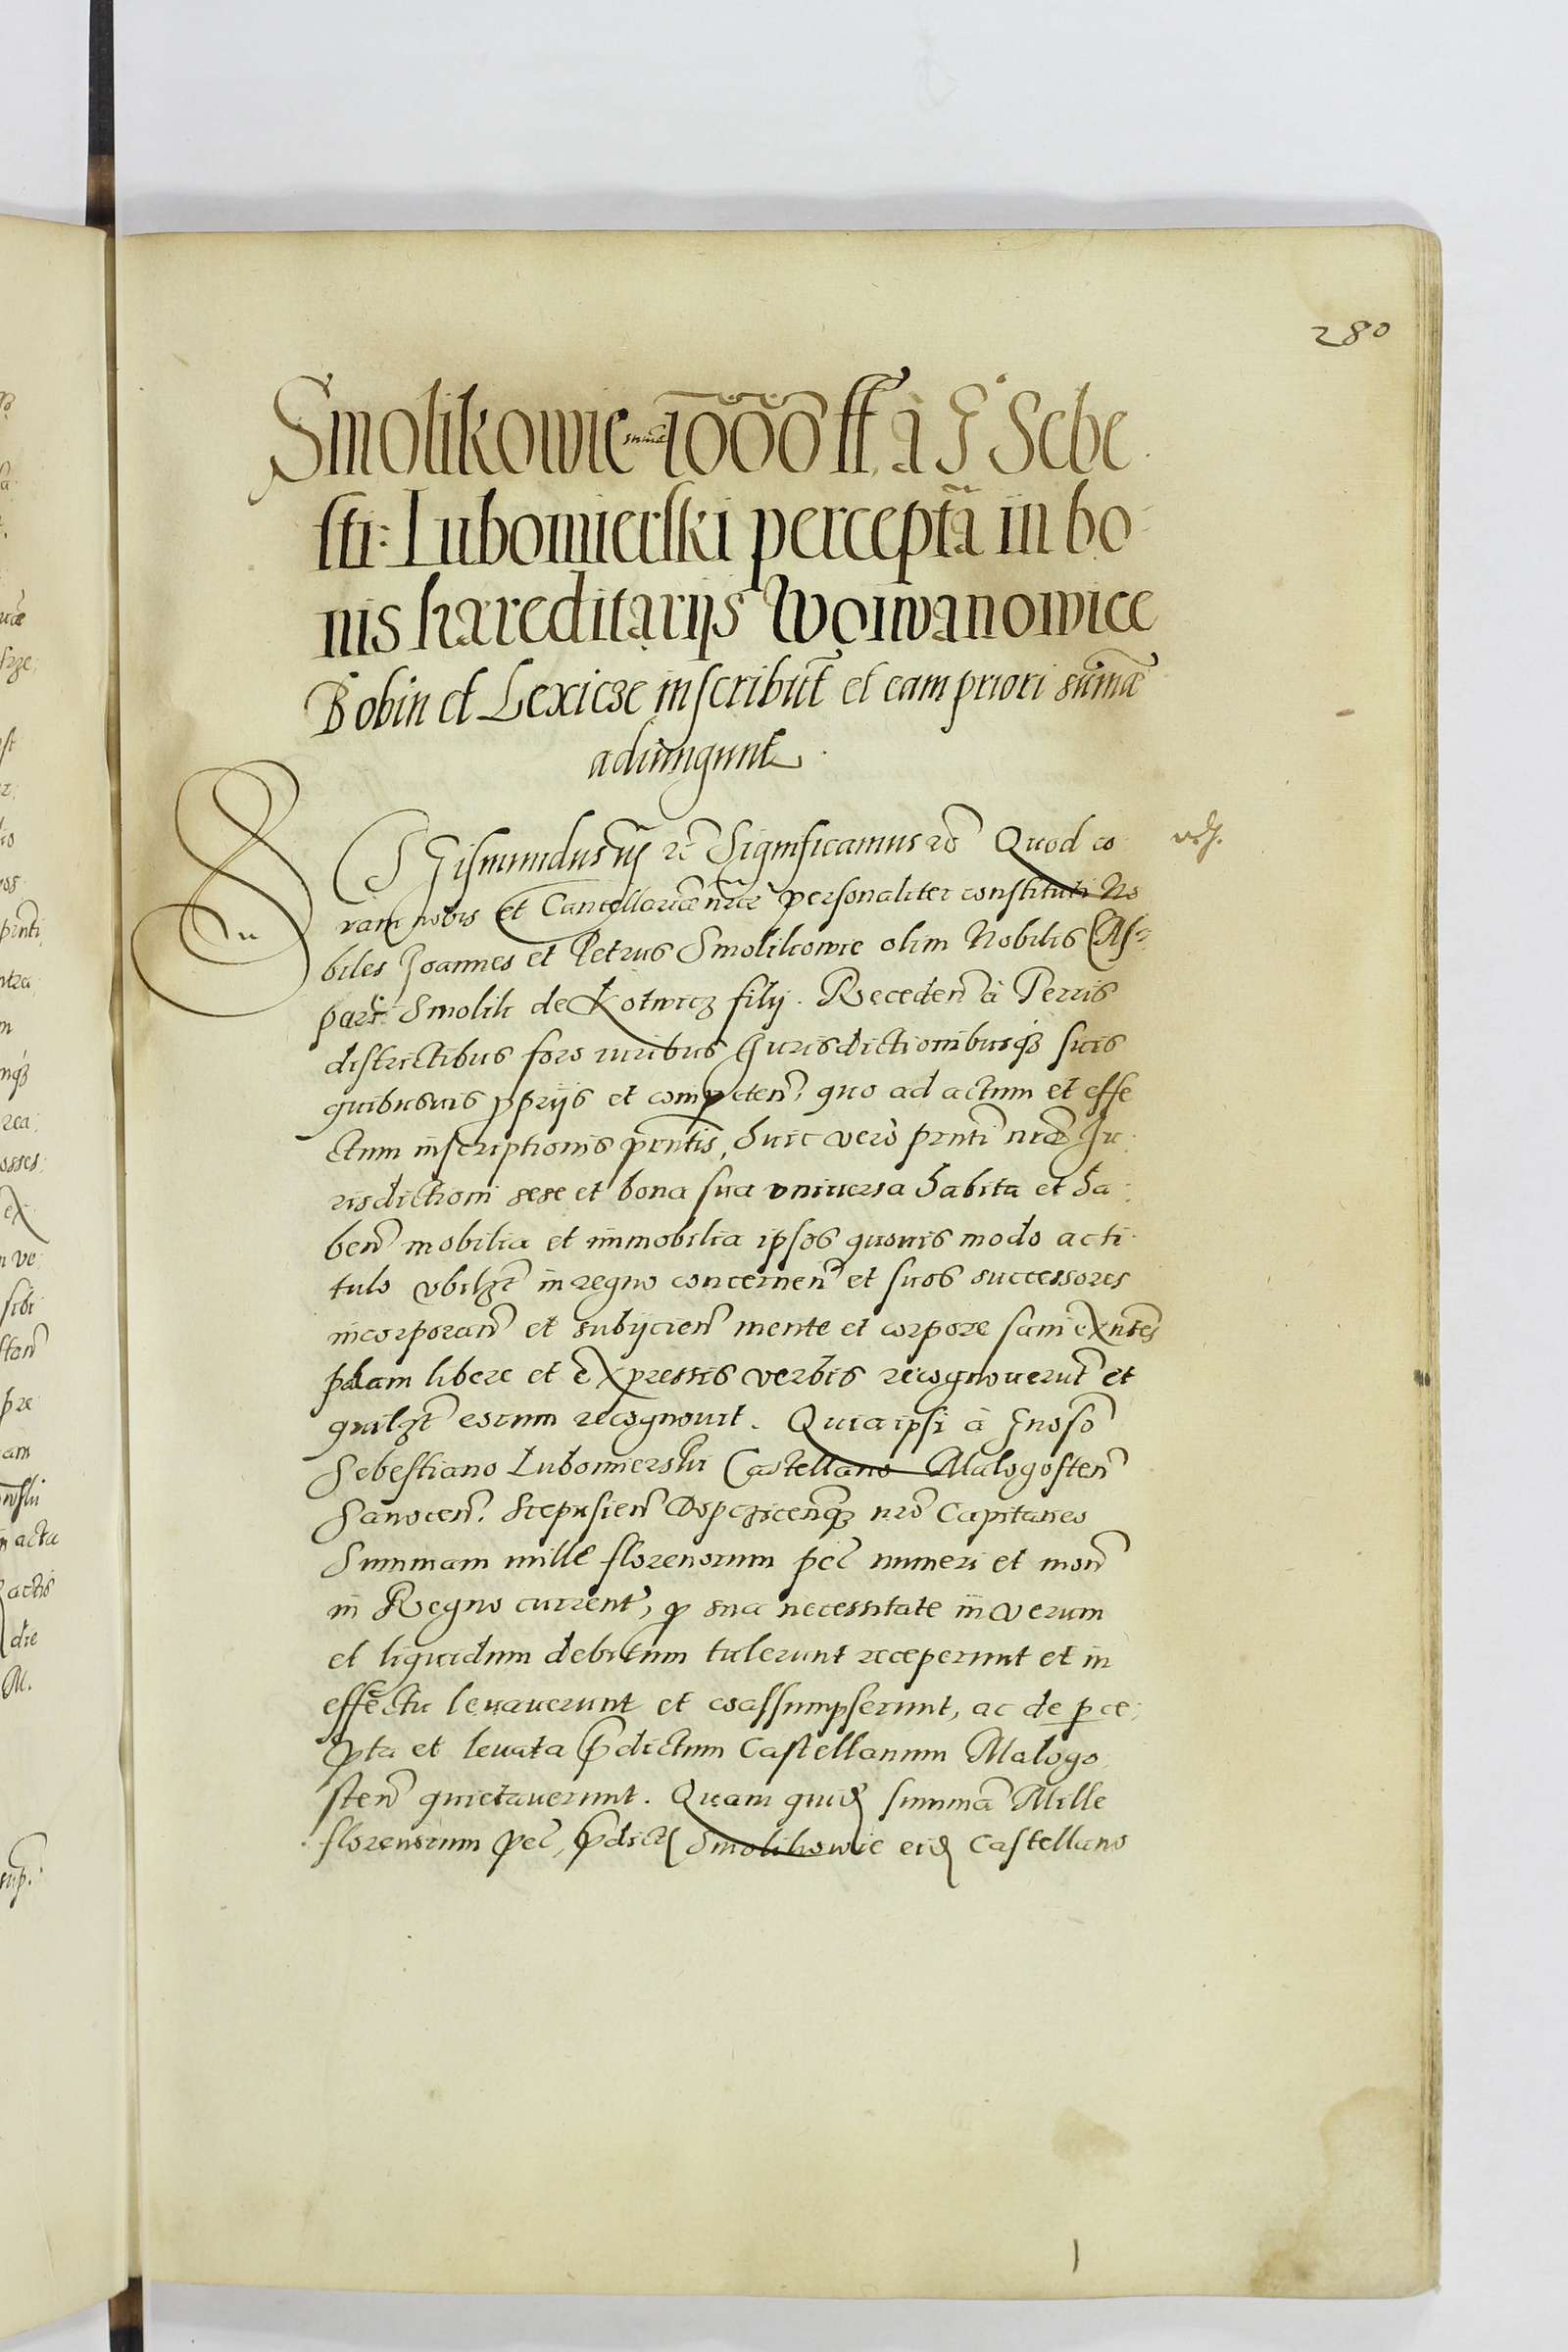 280
Smolikowie sum̄ 1000 ff. à G Sebe
sti: Lubomierski percept̃a in bo
nis hæreditarijs Woiwanowice
Bobin et Lexicze inscribũt et eam priori sum̃æ
adiungunt
Sigismundus iij etc̃ Significamus etc̃ Quod co
ram nobis et Cancellariæ nr̃æ personaliter constituti No
biles Joannes et Petrus Smolikowie olim Nobilis CAs
pari Smolik de Kotwicz filij. Receden̄ à Terris
districtibus foro iuribus Jurisdictionibusqꝫ suis
quibusuis ꝓprijs et competen̄, quo ad actum et effe
ctum inscriptionis pr̃ntis, huic verò pr̃nti nr̃æ Ju
risdictioni sese et bona sua vniuersa habita et ha
ben̄ mobilia et immobilia ipsos quouis modo ac ti
tulo vbilꝫt in regno concernen̄ et suos successores
incorporan̄ et subijcien̄ mente et corpore sani exñtes
palam libere et expressis verbis recognouerũt et
quilꝫt eorum recognouit. Quia ipsi à Gnoso
Sebestiano Lubomierski Castellano Malogosten̄
Sanocen̄. Scepusien̄ Dopczicen̄qꝫ nr̃o Capitaneo
Summam mille florenorum pec̄ numeri et mon̄
in Regno curren̄t, ꝓ sua necessitate in verum
et liquidum debitum tulerunt receperunt et in
effectu leuauerunt et coassumpserunt, ac de perce
pta et leuata p̃dictum Castellanum Malogo
sten̄ quietauerunt. Quam quid̃ summã Mille
florenorum pec̄, p̃dict̃ Smolikowie eid̃ Castellano